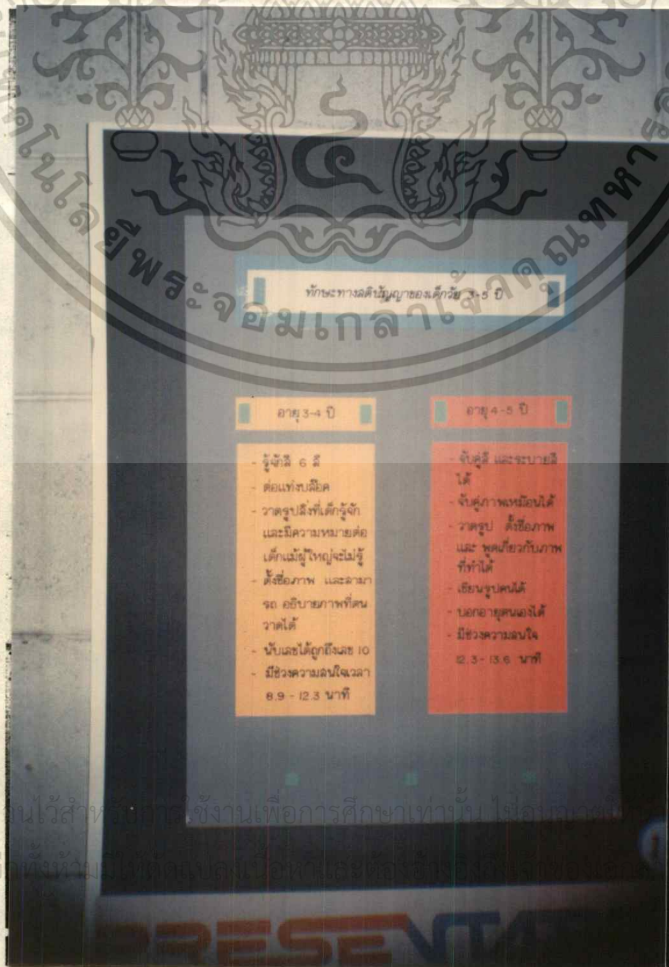 ทักษะทางสติปัญญาของเด็กวัย 3-5 ปี
อายุ 3-4 ปี
- รู้จักสี 6 สี
- ต่อแท่งบล๊อค
- วาดรูปสิ่งที่เด็กรู้จัก
และมีความหมายต่อ
เด็กแม้ผู้ใหญ่จะไม่รู้
- ตั้งชื่อภาพ และสามา
รถ อธิบายภาพที่ตน
วาดได้
- นับเลขได้ถูกถึงเลข 10
- มีช่วงความสนใจเวลา
8.9 - 12.3 นาที
อายุ 4-5 ปี
- จับคู่สี และระบายสี
ได้
- จับคู่ภาพเหมือนได้
- วาดรูป ตั้งชื่อภาพ
และ พูดเกี่ยวกับภาพ
ที่ทำได้
- เขียนรูปคนได้
- บอกอายุตนเองได้
- มีช่วงความสนใจ
12.3 - 13.6 นาที
คโนโลยีพระจอมเกล้าเจ้าคุณทหาร
งานเพื่อการศึกษาเท่านั้น
PRESENTAT